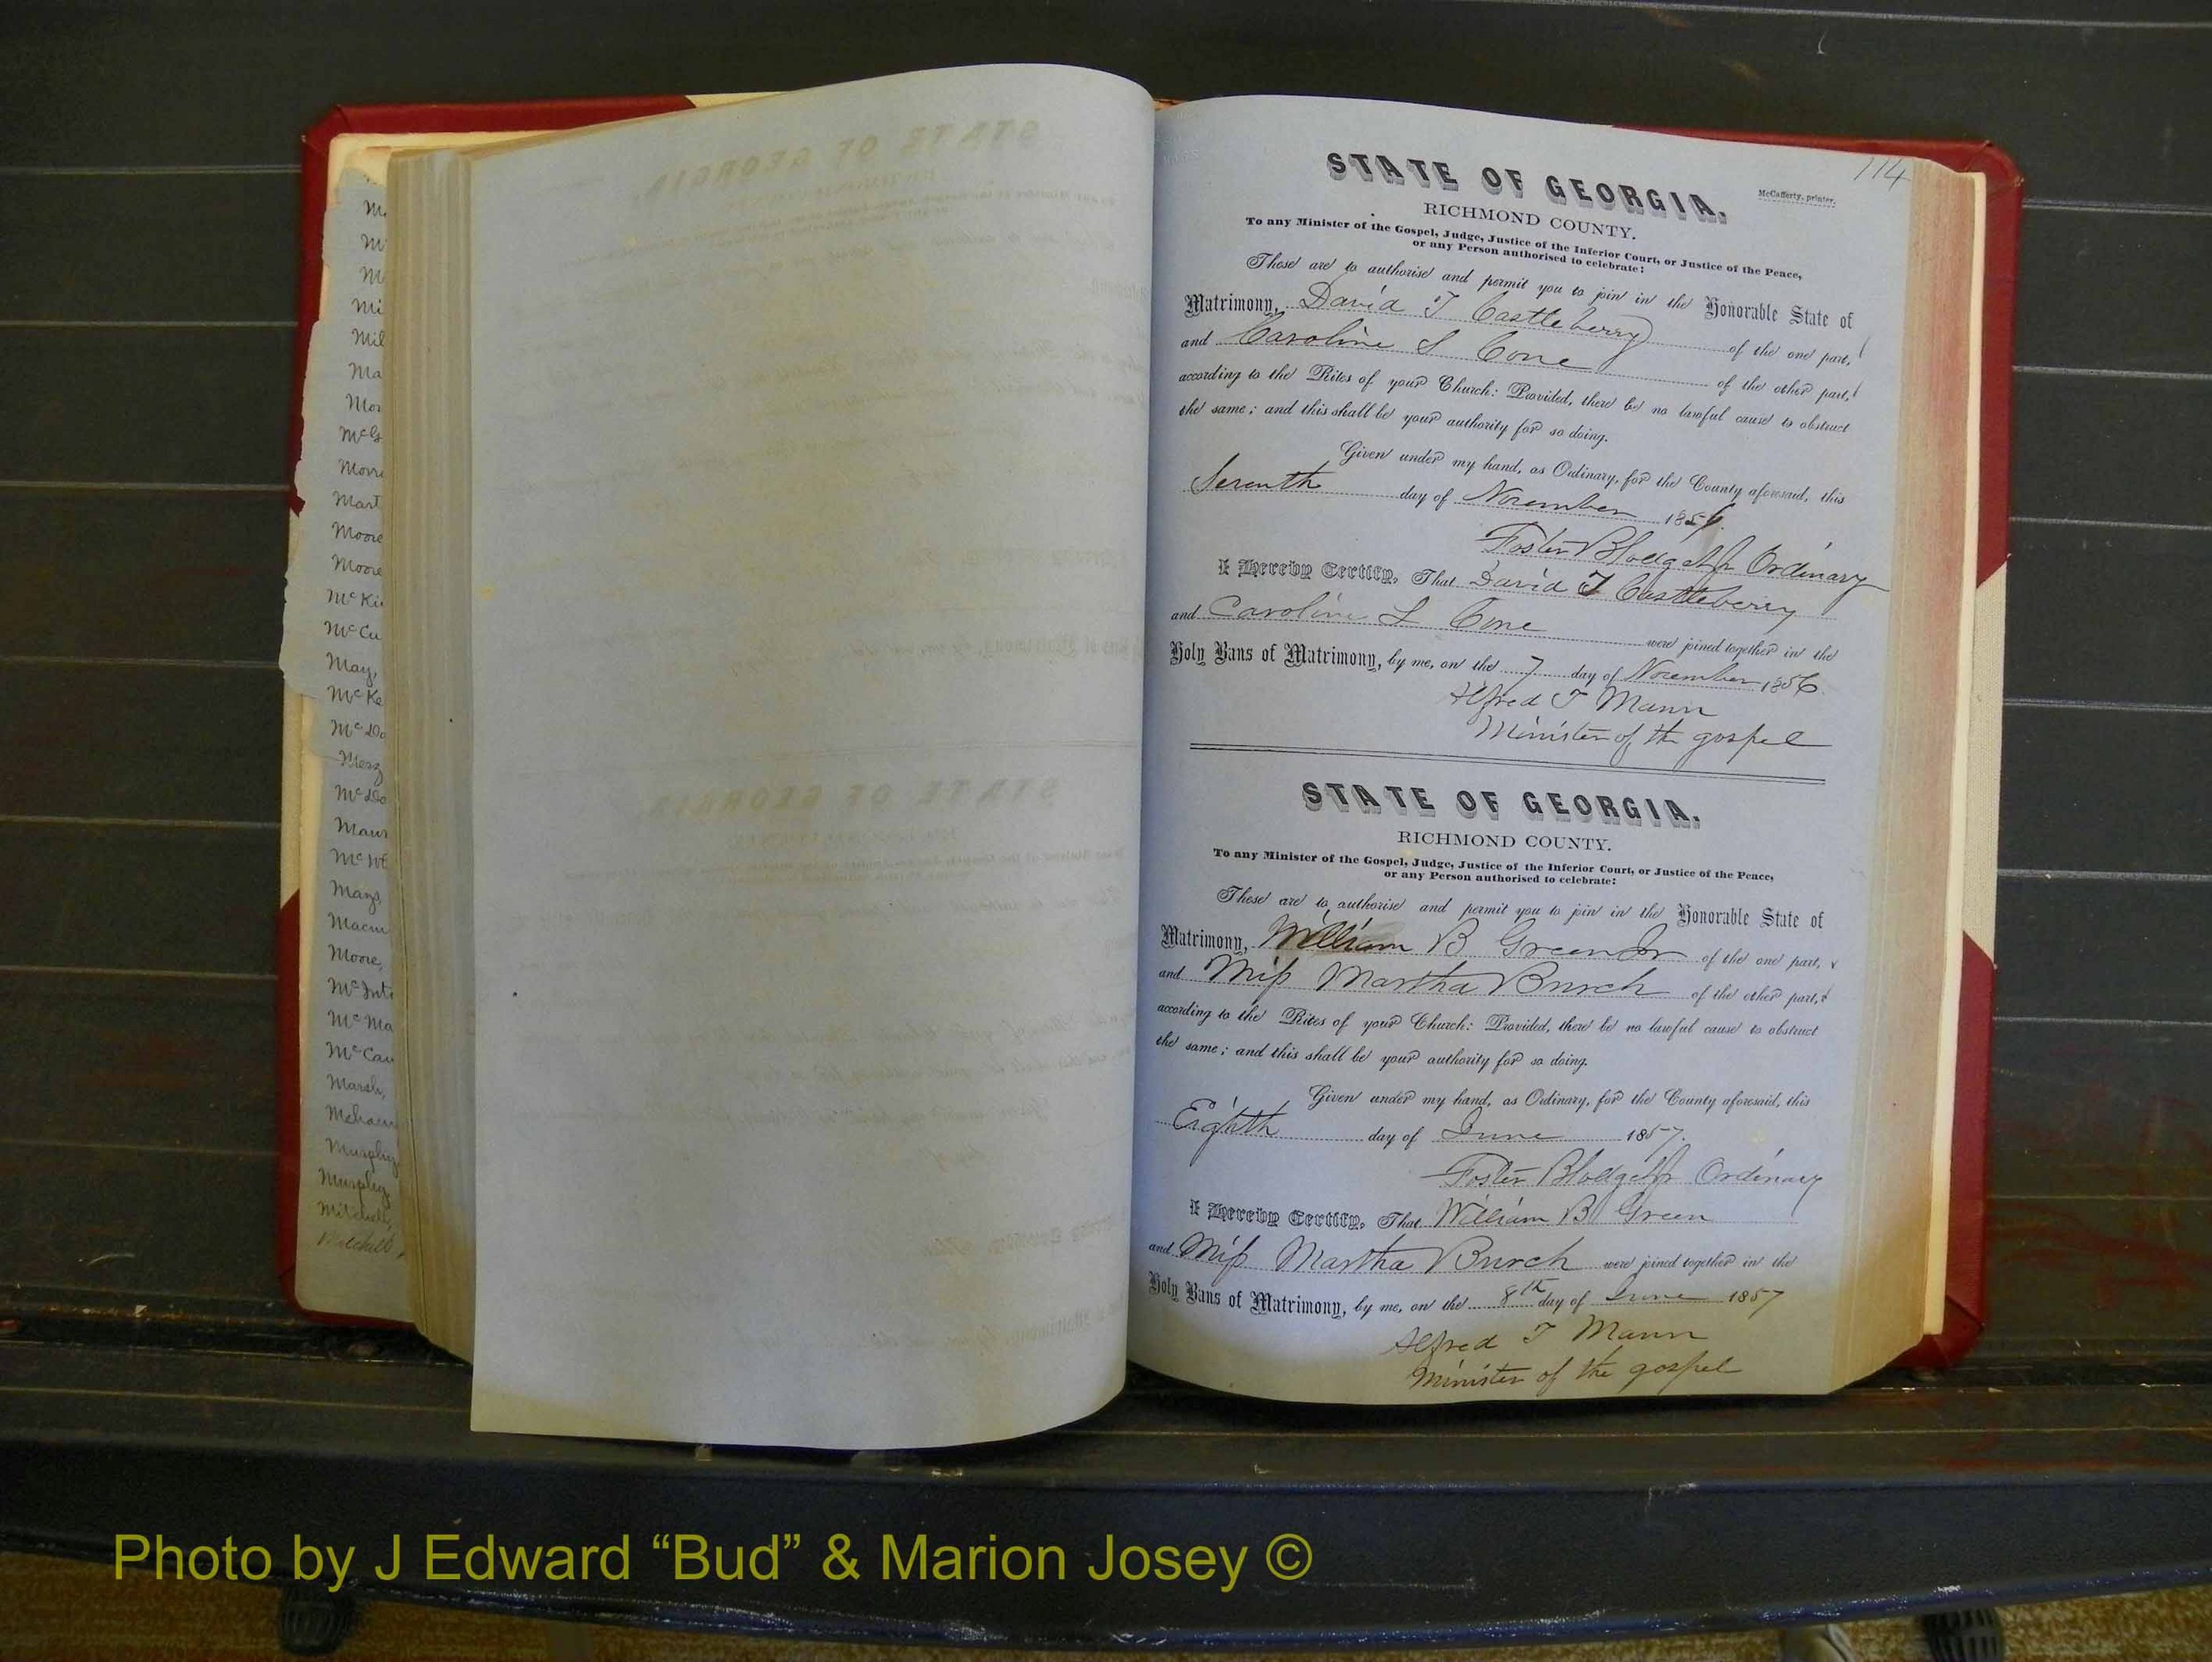 M
M
M
Mi
Mil
Ma
Mor
McG
Morr
Mart
Moore
Moore
McKi
McCu
May,
McKe
McDo
Merz
McDo
Maur
McWl
Mays,
Macm
Moore,
McInt
McMa
McCau
Marsh,
Murphy
Murphy,
Mitchell,
Mitchell,
114
STATE OF GEORGIA.
McCafferty, printer.
RICHMOND COUNTY.
To any Minister of the Gospel, Judge, Justice of the Inferior Court, or Justice of the Peace,
or any Person authorised to celebrate:
These are to authorise and permit you to join in the Honorable State of
Matrimony, David T Castleberry of the one part,
and Caroline S Cone of the other part,
according to the Rites of your Church: Provided, there be no lawful cause to obstruct
the same; and this shall be your authority for so doing.
Given under my hand, as Ordinary, for the County aforesaid, this
Seventh day of November 1856.
Foster Blodget Jr Ordinary
I Hereby Certify, That David T Castleberry
and Caroline S Cone were joined together in the
Holy Bans of Matrimony, by me, on the 7 day of November 1856.
Alfred T Mann
Minister of the gospel
STATE OF GEORGIA.
RICHMOND COUNTY.
To any Minister of the Gospel, Judge, Justice of the Inferior Court, or Justice of the Peace,
or any Person authorised to celebrate:
These are to authorise and permit you to join in the Honorable State of
Matrimony, William B Green Jr of the one part,
and Miss Martha Burch of the other part,
according to the Rites of your Church: Provided, there be no lawful cause to obstruct
the same; and this shall be your authority for so doing.
Given under my hand, as Ordinary, for the County aforesaid, this
Eighth day of June 1857.
Foster Blodget Jr Ordinary
I Hereby Certify, That William B Green
and Miss Martha Burch were joined together in the
Holy Bans of Matrimony, by me, on the 8th day of June 1857
Alfred T Mann
Minister of the gospel
Photo by J Edward “Bud” & Marion Josey ©